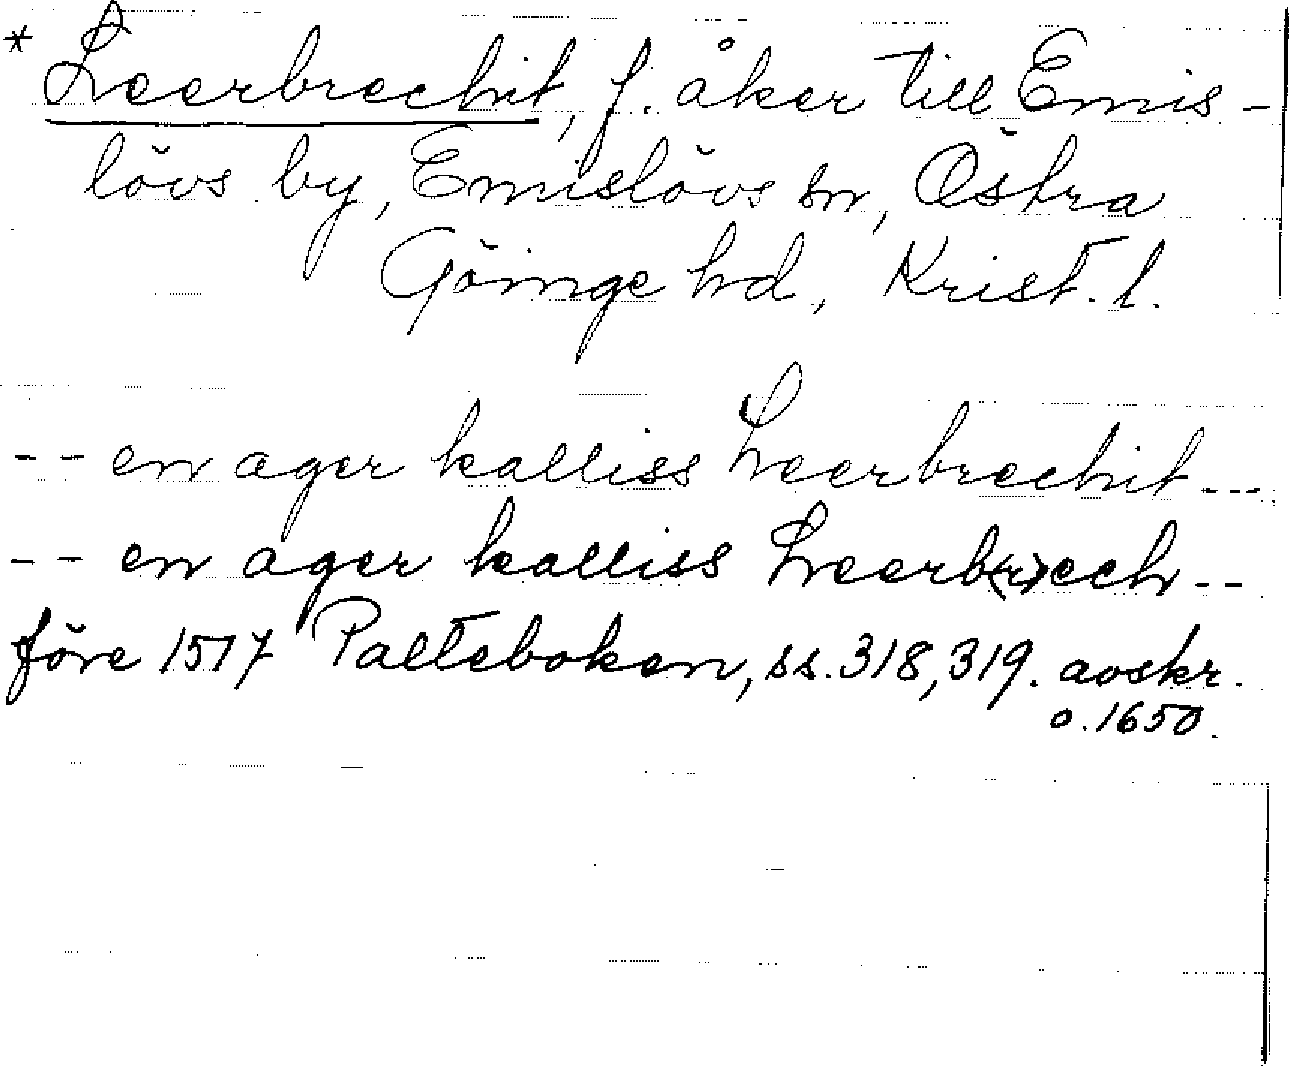 * Leerbrechit, f. åker till Emis-
lövs by, Emislövs sn, Östra
Göinge hd, Krist. l.
-- en ager kalliss Leerbrechit ---
-- en ager kalliss Leerb(r)ech --
före 1517 Palteboken, ss. 318, 319. avskr.
o. 1650.